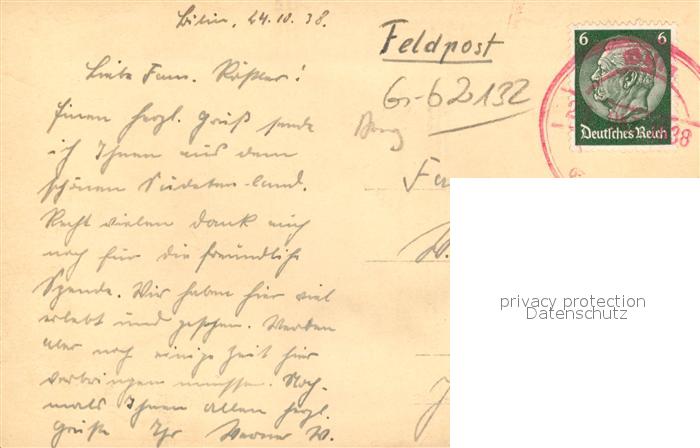 Bilin, 24.10.38.
Liebe Fam. Rößler!
Einen herzl. Gruß sende
ich Ihnen aus dem
schönen Sudeten-land.
Recht vielen dank auch
noch für die freundliche
Spende. Wir haben hier viel
erlebt und gesehen. Werden
aber noch einige Zeit hier
verbringen müssen. Noch-
mals Ihnen allen herzl.
Grüße Ihr Werner W.
Feldpost
6 6
Deutsches Reich
38
privacy protection
Datenschutz